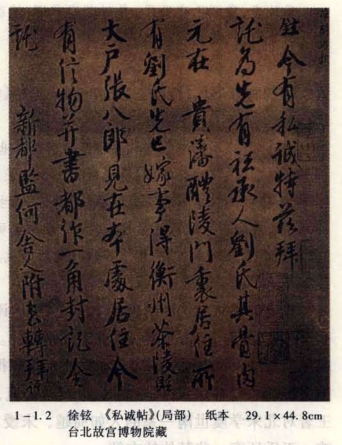 鉉今有私誠特茲拜
託為先有祗承人劉氏其骨肉
元在 貴藩醴陵門裏居住所
有劉氏先已嫁事得衡州茶陵縣
大户張八郎見在本處居住今
有信物并書都作一角封記全
託 新都監何舍人附去轉拜
1-1.2 徐铉 《私诚帖》(局部) 纸本 29.1×44.8cm
台北故宫博物院藏